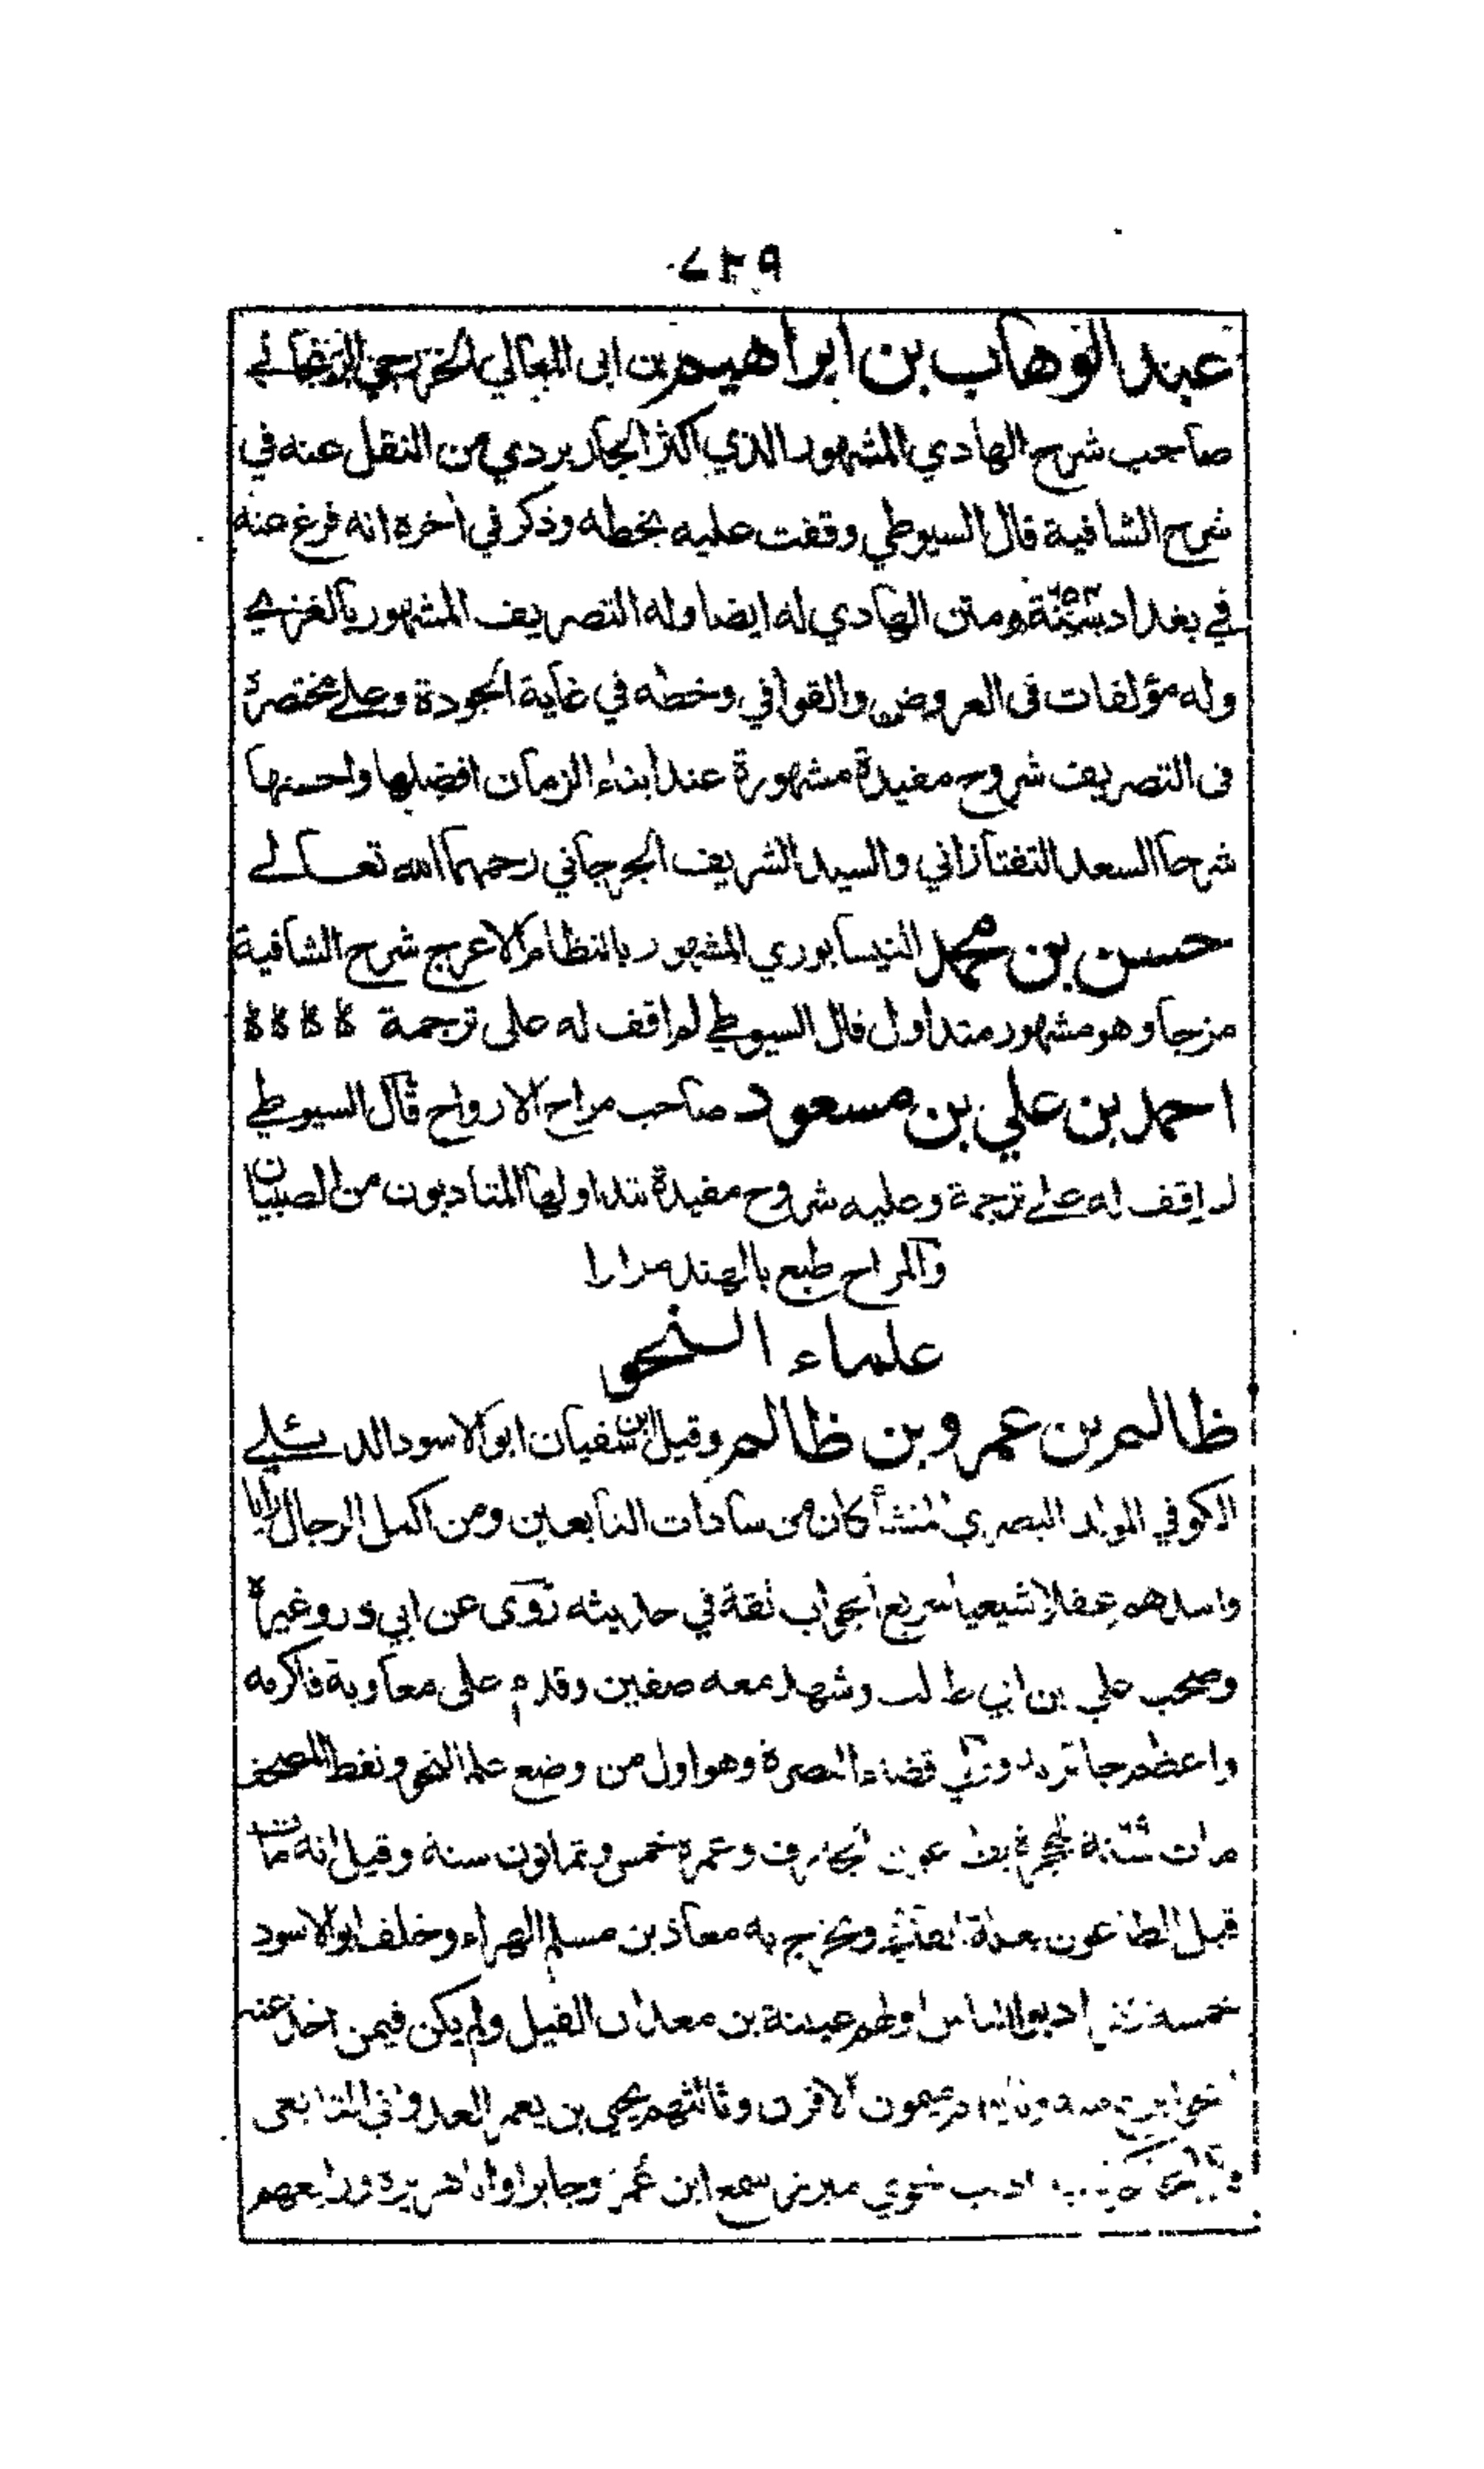 عبد الوهاب بن ابراهيم بن ابي المعالي الخزرجي الزنجاني
صاحب شرح الهادي المشهور الذي اكثر الجاربردي من النقل عنه في
شرح الشافية قال السيوطي وقفت عليه بخطه وذكر في اخره انه فرغ منه
في بغداد سنة ومتن الهادي له ايضا وله التصريف المشهور بالغزي
وله مؤلفات فى العروض والقوافي وخطه في غاية الجودة وعلى مختصره
فى التصريف شروح مفيدة مشهورة عند ابناء الزمان افضلها واحسنها
شرحا السعد التفتازاني والسيد الشريف الجرجاني رحمهما الله تعالى
حسن بن محمد النيسابوري المشهور بالنظام الاعرج شرح الشافية
مزجا وهو مشهور متداول قال السيوطي لم اقف له على ترجمة
احمد بن علي بن مسعود صاحب مراح الارواح قال السيوطي
لم اقف له على ترجمة وعليه شروح مفيدة تتداولها المتادبون من الصبيان
والمراح طبع بالهند مرارا
علماء النحو
ظالم بن عمرو بن ظالم وقيل ابن سفيان ابو الاسود الدئلي
الكوفي المولد البصري المنشأ كان من سادات التابعين ومن اكمل الرجال رايا
واسدهم عقلا شيعيا سريع الجواب ثقة في حديثه روى عن ابي ذر وغيره
وصحب علي بن ابي طالب وشهد معه صفين وقدم على معاوية فاكرمه
واعظم جائزته وولي قضاء البصرة وهو اول من وضع علم النحو ونقط المصحف
مات سنة بطاعون الجارف وعمره خمس وثمانون سنة وقيل انه مات
قبل الطاعون بعلة وتخرج به معاذ بن مسلم الهراء وخلف ابو الاسود
خمسة اولهم عيينة بن معدان الفيل ولم يكن فيمن اخذ عنه
ميمون الاقرن وثالثهم يحيى بن يعمر العدواني التابعي
نحوي مبرز سمع ابن عمر وجابرا وابا هريرة ورابعهم